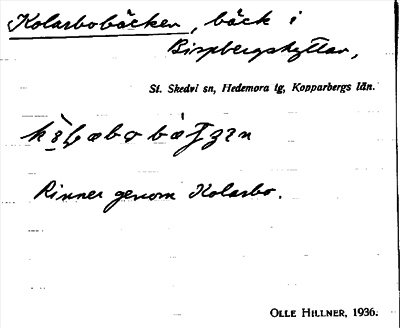 Kolarbobäcken, bäck i
Bispbergshyttan,
St. Skedvi sn, Hedemora tg, Kopparbergs län.
Rinner genom Kolarbo.
OLLE HILLNER, 1936.